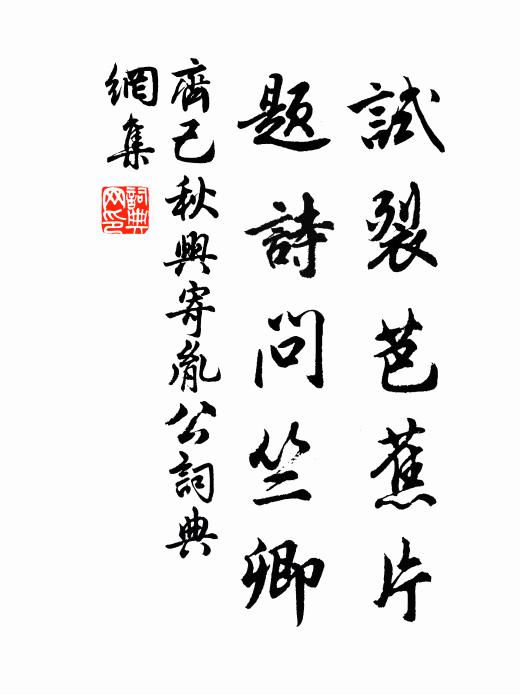 試裂芭蕉片
題詩問竺卿
齊己秋興寄胤公詞典
網集
詞典網印